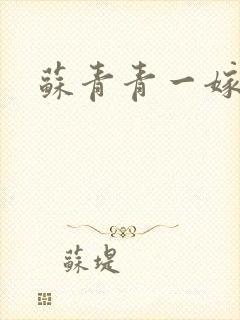 蘇青青一嫁
蘇堤